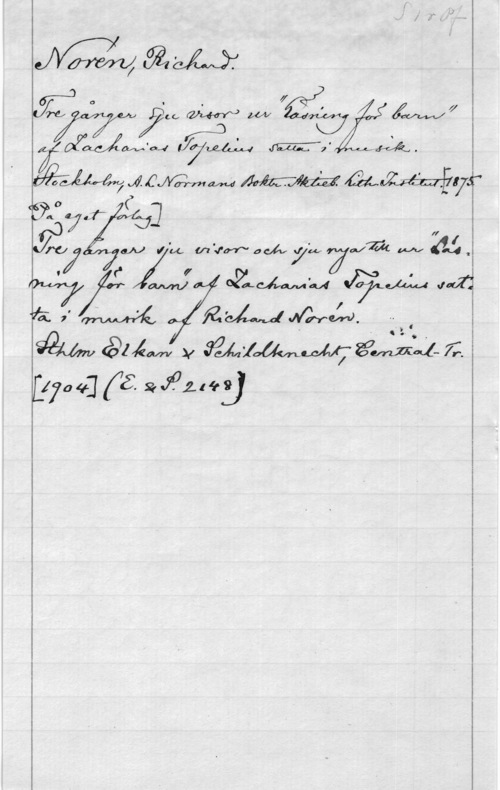 Norén, Richard.
Tre gånger sju visor ur "Läsning för barn"
af Zacharias Topelius satta i musik.
Stockholm, A. L. Normans Boktr. Aktieb. Lith. Institut. [1875
På eget förlag]
Tre gånger sju visor och sju nya till ur "Läs-
ning för barn" af Zacharias Topelius sat-
ta i musik af Richard Norén.
Sthlm Elkan & Schildknecht, Central-Tr.
[1904] (E. & S. 2148)